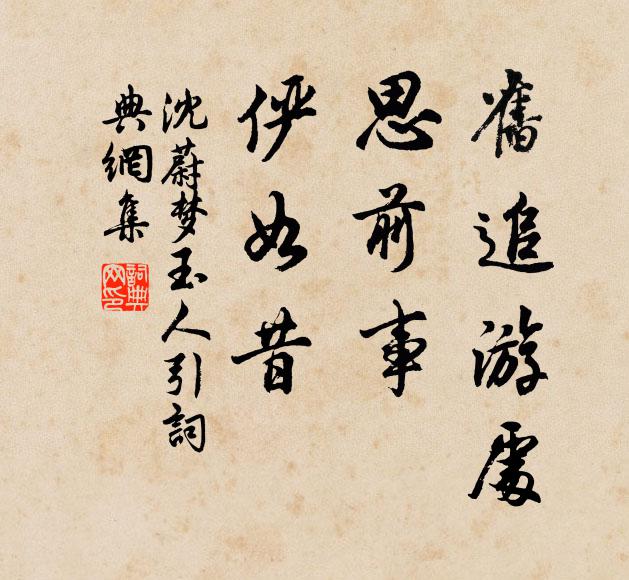 舊追游處
思前事
俨如昔
沈蔚梦玉人引詞
典網集
詞典网印